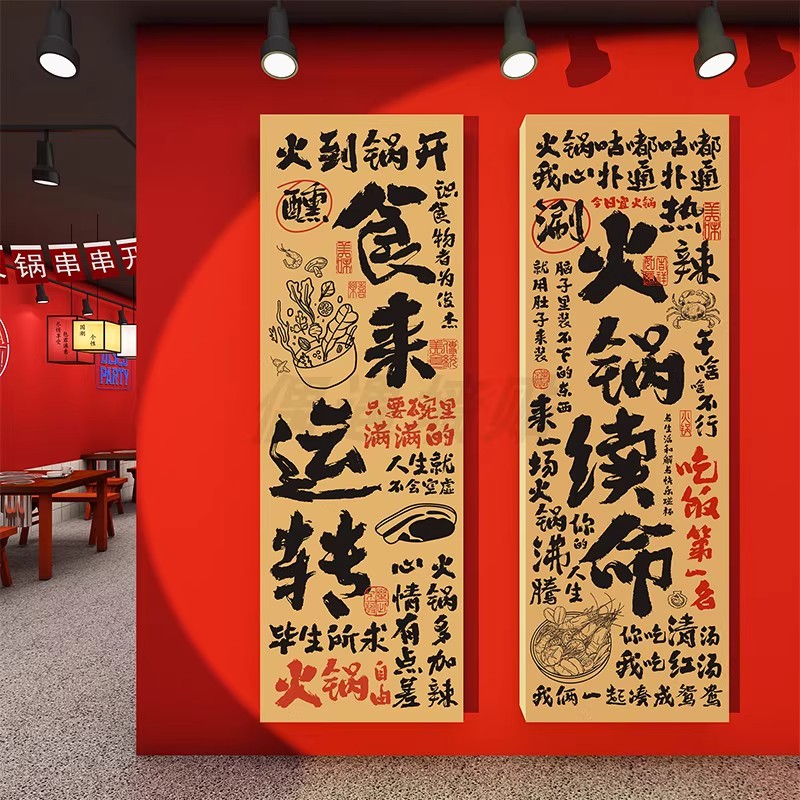 锅串串开
PARTY
火到锅开
醺
食来运转
识食物者为俊杰
美味
只要碗里
满满的
人生就
不会空虚
心情有点差
火锅多加辣
毕生所求
火锅自由
火锅咕嘟咕嘟
我心扑通扑通
今日宜火锅
涮
热辣
美味
火锅续命
脑子里装不下的东西
就用肚子来装
干啥啥不行
吃饭第一名
火锅
与生活和解与快乐碰杯
来一场火锅沸腾
你的人生
你吃清汤
我吃红汤
我俩一起凑成鸳鸯